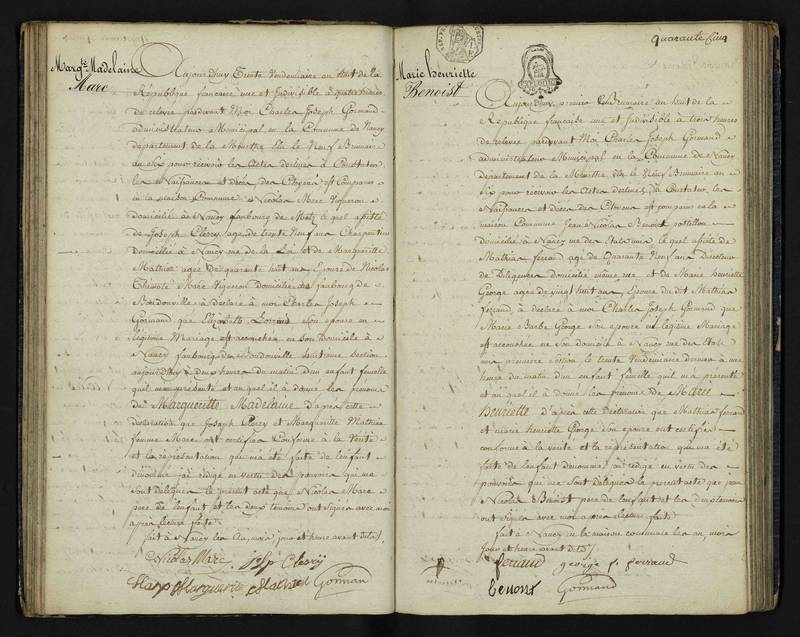 Marg.te Madelaine
Marc
Aujourd'huy trente Vendemiaire an huit de la
République francaise une et Indivisible à quatre heures
de relevée pardevant Moi Charles Joseph Gormand
administrateur Municipal en la Commune de Nancy
departement de la Meurthe élu le Neuf Brumaire
an Six pour recevoir les Actes destinés à Constater
les Naissances et décès des Citoyens est Comparu
en la maison Commune Nicolas Marc Vigneron
domicilié à Nancy faubourg de Metz le quel assisté
de Joseph Clery agé de trente Neuf ans Charpentier
domicilié à Nancy rue de la Loi et de Marguerite
Mathieu agée de quarante huit ans Epouse de Nicolas
Marc Vigneron domiciliée au faubourg de
à déclaré à moi Charles Joseph
Gormand que Elizabeth son épouse en
légitime Mariage est accouchée en Son Domicile à
Nancy faubourg Section
aujourd'huy à deux heures du matin d'un enfant femelle
quil m'a présenté et au quel il à donné les prénoms
de Margueritte Madelaine d'après cette
déclaration que Joseph Clery et Margueritte Mathieu
femme Marc ont certifiée Conforme à la Vérité
et la représentation qui m'a été faite de lenfant
dénommé j'ai rédigé en vertu des pouvoirs qui me
sont délégués le présent acte que Nicolas Marc
pere de lenfant et les deux temoins ont signés avec moi
après lecture faite
fait à Nancy les an, mois, jour et heure avant dits /.
Nicolas Marc Josp Clery
Marguerite Mathieu Gormand
quarante Cinq
Marie henriette
Benoist
Aujourd'huy premier Brumaire an huit de la
République francaise une et Indivisible à trois heures
de relevée pardevant Moi Charles Joseph Gormand
administrateur Municipal en la Commune de Nancy
département de la Meurthe élu le Neuf Brumaire an
Six pour recevoir les Actes destinés à Constater les
Naissances et décès des Citoyens est comparu en la
maison Commune Jean Nicolas Benoist postillon
domicilié à Nancy rue des Etats une, le quel assisté de
Mathias ferraud agé de Quarante Neuf ans Directeur
de Diligences domicilié même rue et de Marie henriette
George agée de vingt huit ans, Epouse du dit Mathias
ferraud à déclaré à moi Charles Joseph Gormand que
Marie Barbe George son epouse en légitime Mariage
est accouchée en Son domicile à Nancy rue des Etats
une premiere section le trente Vendemiaire dernier à une
heure du matin d'un enfant femelle quil m'a présenté
et au quel il à donné les prénoms de Marie
henriette d'après cette déclaration que Mathias ferraud
et marie henriette George son épouse ont certifiée
conforme à la vérité et la représentation qui m'a été
faite de lenfant dénommé, j'ai rédigé en vertu des
pouvoirs qui me sont délégués le present acte que Jean
Nicolas Benoist pere de lenfant et les deux temoins
ont signés avec moi après lecture faite
fait à Nancy en la maison commune les an, mois
Jour et heure avant dits /.
ferraud george f. ferraud
benoist Gormand